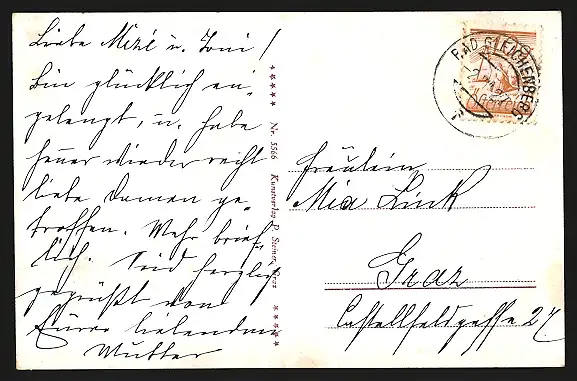 Liebe Mizi u. Toni!
Bin glücklich an-
gelangt, u. habe
heuer wieder recht
liebe Damen ge-
troffen. Mehr brief-
lich. Seid herzlich
gegrüßt von
Eurer liebenden
Mutter
***** Nr. 5566 Kunstverlag P. Steiner, Graz *****
BAD GLEICHENBERG
Fräulein
Mia Link
Graz
Castellfeldgasse 27